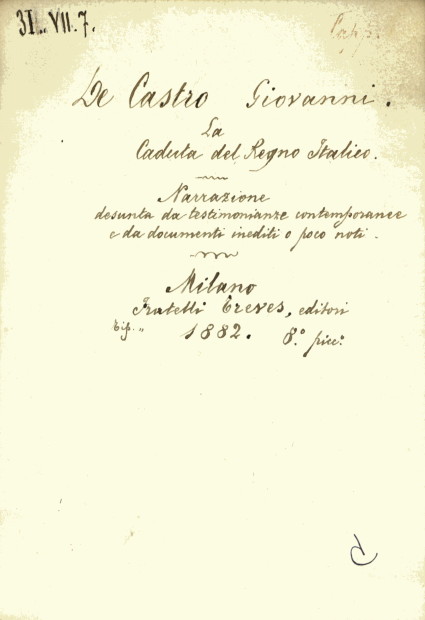 31.. VII. 7.
De Castro Giovanni.
La
Caduta del Regno Italico.
Narrazione
desunta da testimonianze contemporanee
e da documenti inediti o poco noti.
Milano
Fratelli Treves, editori
Tip. „ 1882. 8.° picc.°